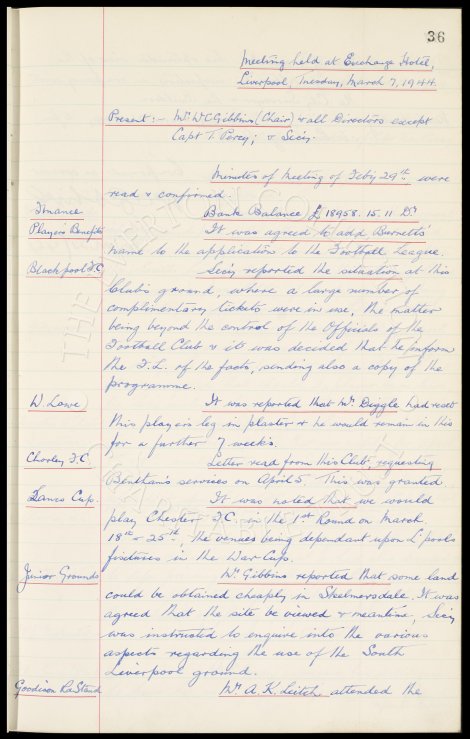 36
Meeting held at Exchange Hotel,
Liverpool, Tuesday, March 7, 1944.
Present:- Mr. W.C. Gibbins (Chair) & all Directors except
Capt T. Percy; & Secy.
Minutes of Meeting of Feby 29th were
read & confirmed.
Finance
Bank Balance £18958. 15. 11 Dr
Players Benefits
It was agreed to add Burnetts'
name to the application to the Football League.
Blackpool F.C.
Secy reported the situation at this
Club's ground, where a large number of
complimentary tickets were in use, the matter
being beyond the control of the Officials of the
Football Club & it was decided that he inform
the F.L. of the facts, sending also a copy of the
programme.
W. Lowe
It was reported that Mr. Diggle had reset
this players leg in plaster & he would remain in this
for a further 7 weeks.
Chorley F.C.
Letter read from this Club, requesting
Bentham's services on April 5. This was granted.
Lancs Cup.
It was noted that we would
play Chester F.C. in the 1st Round on March
18th - 25th the venues being dependant upon L'pools
fixtures in the War Cup.
Junior Grounds
Mr. Gibbins reported that some land
could be obtained cheaply in Skelmersdale. It was
agreed that the site be viewed & meantime, Secy
was instructed to enquire into the various
aspects regarding the use of the South
Liverpool ground.
Goodison Rd. Stand
Mr. A. K. Leitch attended the